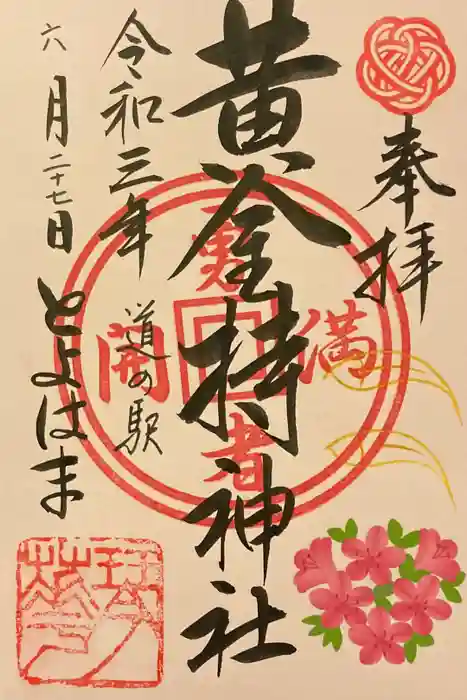 奉拝
黄金持神社
令和三年
六月二十七日
道の駅
とよはま